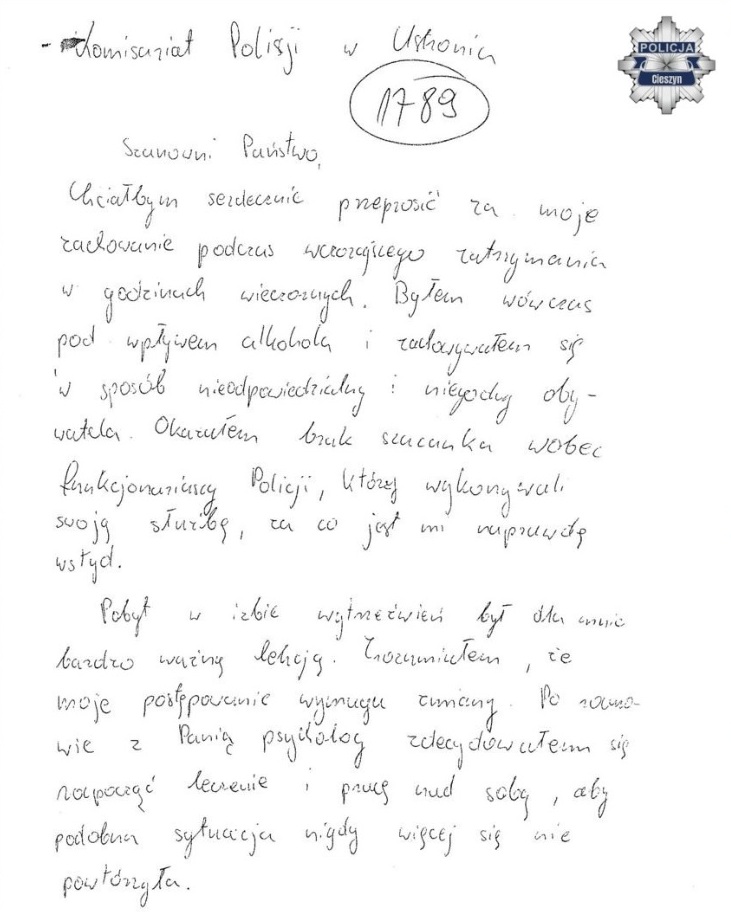 - Komisariat Policji w Ustroniu
POLICJA
Cieszyn
1789
Szanowni Państwo,
Chciałbym serdecznie przeprosić za moje
zachowanie podczas wczorajszego zatrzymania
w godzinach wieczornych. Byłem wówczas
pod wpływem alkoholu i zachowywałem się
w sposób nieodpowiedzialny i niegodny oby-
watela. Okazałem brak szacunku wobec
funkcjonariuszy Policji, którzy wykonywali
swoją służbę, za co jest mi naprawdę
wstyd.
Pobyt w izbie wytrzeźwień był dla mnie
bardzo ważną lekcją. Zrozumiałem, że
moje postępowanie wymaga zmiany. Po rozmo-
wie z Panią psycholog zdecydowałem się
rozpocząć leczenie i pracę nad sobą, aby
podobna sytuacja nigdy więcej się nie
powtórzyła.